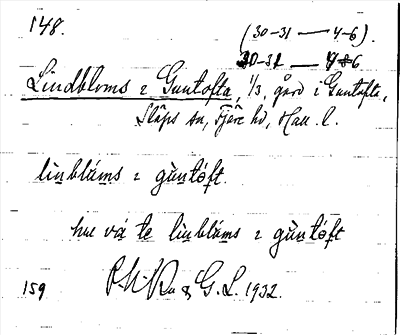 148.
(30-31 — 4-6).
30-31 — 4-6
Lindbloms i Guntofta, 1/3, gård i Guntofta,
Släps sn, Fjäre hd, Hall. l.
lìnblúms ı gùntóft.
hue vá te lìnblúms ı gùntóft
159 & G. L. 1932.